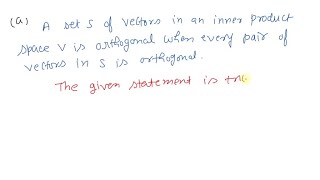 (a) A set S of vectors in an inner product
space V is orthogonal when every pair of
vectors in S is orthogonal.
The given statement is tru